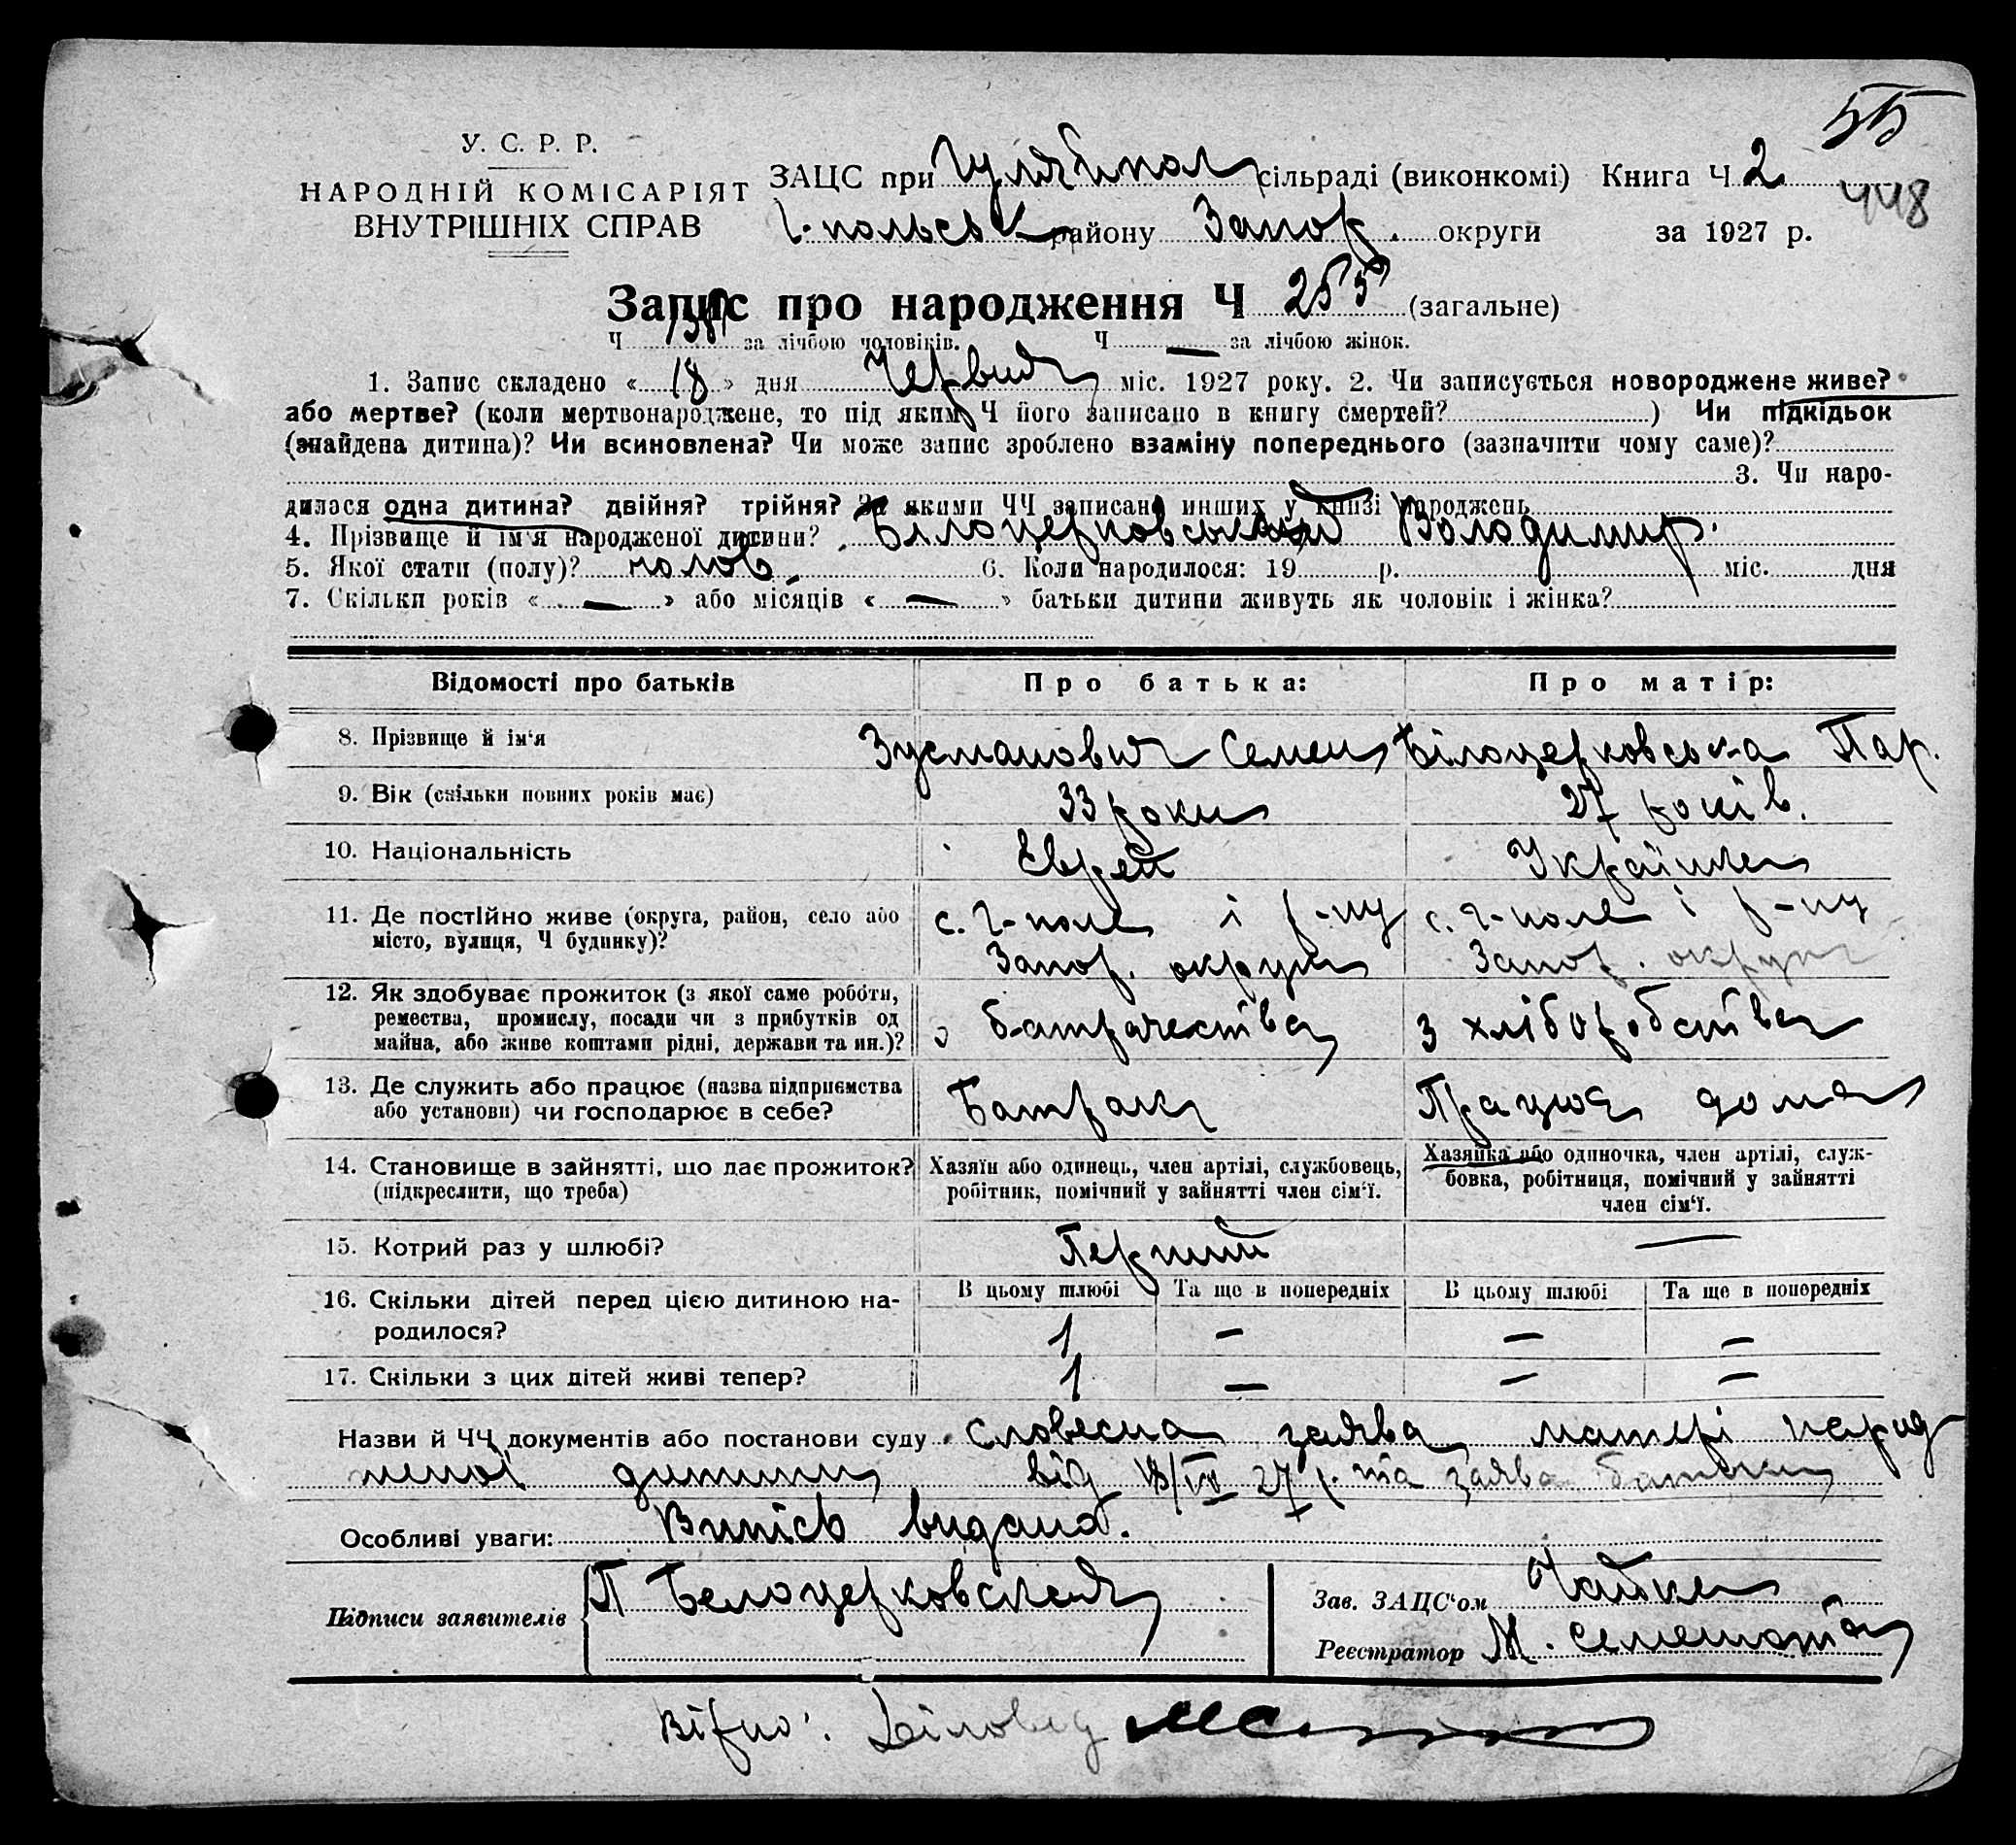 55
У. С. Р. Р.
НАРОДНІЙ КОМІСАРІЯТ
ВНУТРІШНІХ СПРАВ
ЗАЦС при Гуляйпол сільраді (виконкомі) Книга Ч 2
448
Г-польськ району Запор. округи за 1927 р.
Запис про народження Ч 255 (загальне)
Ч за лічбою чоловіків. Ч — за лічбою жінок.
1. Запис складено « 18 » дня Червня міс. 1927 року. 2. Чи записується новороджене живе?
або мертве? (коли мертвонароджене, то під яким Ч його записано в книгу смертей? ) Чи підкідьок
(знайдена дитина)? Чи всиновлена? Чи може запис зроблено взаміну попереднього (зазначити чому саме)?
3. Чи наро-
дилася одна дитина? двійня? трійня? За якими ЧЧ записано инших у книзі народжень
4. Прізвище й ім'я народженої дитини? Білоцерковський Володимир.
5. Якої стати (полу)? чолов. 6. Коли народилося: 19 р. міс. дня
7. Скільки років « — » або місяців « — » батьки дитини живуть як чоловік і жінка?
Відомості про батьків Про батька: Про матір:
8. Прізвище й ім'я Зусманович Семен Білоцерковська Пар.
9. Вік (скільки повних років має) 33 роки 27 років.
10. Національність Єврей Українка
11. Де постійно живе (округа, район, село або с. Г-поле і р-ну с. Г-поле і р-ну
місто, вулиця, Ч будинку)? Запор. округи Запор. округи
12. Як здобуває прожиток (з якої саме роботи,
ремества, промислу, посади чи з прибутків од з батрачества з хліборобства
майна, або живе коштами рідні, держави та ин.)?
13. Де служить або працює (назва підприємства Батрак Працює дома
або установи) чи господарює в себе?
14. Становище в зайнятті, що дає прожиток? Хазяїн або одинець, член артілі, службовець, Хазяйка або одиночка, член артілі, служ-
(підкреслити, що треба) робітник, помічний у зайнятті член сім'ї. бовка, робітниця, помічний у зайнятті
член сім'ї.
15. Котрий раз у шлюбі? Перший —
16. Скільки дітей перед цією дитиною на- В цьому шлюбі Та ще в попередніх В цьому шлюбі Та ще в попередніх
родилося? 1 — — —
17. Скільки з цих дітей живі тепер? 1 — — —
Назви й ЧЧ документів або постанови суду словесна заява матері народ
женої дитини від 18/VI 27 р. та заява батька
Особливі уваги: Випісь видана.
Підписи заявителів П Белоцерковская Зав. ЗАЦС'ом Чайка
Реєстратор М.
Вірно: Діловод